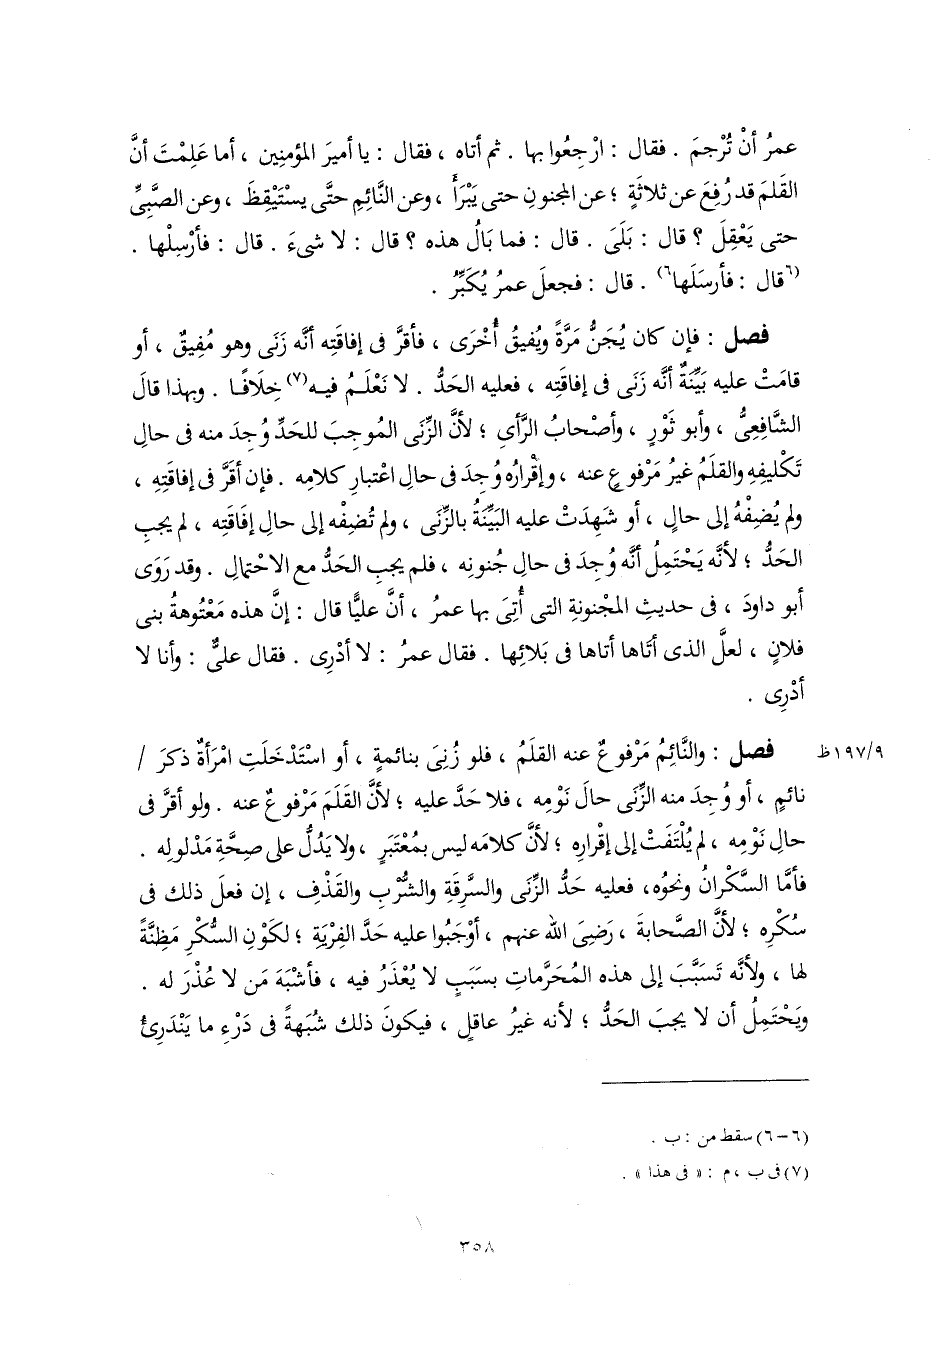 عمرُ أنْ تُرْجمَ . فقال : ارْجِعُوا بها . ثم أتاه ، فقال : يا أميرَ المؤمنِين ، أما عَلِمْتَ أنَّ
القَلمَ قد رُفِعَ عن ثلاثَةٍ ؛ عن المجنونِ حتى يَبْرَأَ ، وعن النَّائِمِ حتَّى يسْتَيْقِظَ ، وعن الصَّبِىِّ
حتى يَعْقِلَ ؟ قال : بَلَى . قال : فما بَالُ هذه ؟ قال : لا شىءَ . قال : فأرْسِلْها .
(٦قال : فأرسَلَها٦) . قال : فجعلَ عمرُ يُكَبِّرُ .
فصل : فإن كان يُجَنُّ مَرَّةً ويُفيقُ أُخْرَى ، فأقرَّ فى إفاقَتِه أنَّه زَنَى وهو مُفِيقٌ ، أو
قامَتْ عليه بَيِّنَةٌ أنَّه زَنَى فى إفاقَتِه ، فعليه الحَدُّ . لا نَعْلَمُ فيه(٧) خِلَافًا . وبهذا قالَ
الشَّافِعِىُّ ، وأبو ثَوْرٍ ، وأصْحابُ الرَّأىِ ؛ لأنَّ الزِّنَى المُوجِبَ للحَدِّ وُجِدَ منه فى حالِ
تَكْلِيفِهِ والقلَمُ غيرُ مَرْفوعٍ عنه ، وإقْرارُه وُجِدَ فى حالِ اعْتبارِ كلامِه . فإن أقَرَّ فى إفاقَتِهِ ،
ولم يُضِفْهُ إلى حالٍ ، أو شَهِدَتْ عليه البَيِّنَةُ بالزِّنَى ، ولم تُضِفْه إلى حالِ إفَاقَتِه ، لم يجبِ
الحَدُّ ؛ لأنَّه يَحْتَمِلُ أنَّه وُجِدَ فى حالِ جُنونِه ، فلم يجبِ الحَدُّ مع الاحْتمالِ . وقد رَوَى
أبو داودَ ، فى حديثِ المجْنونةِ التى أُتِىَ بها عمرُ ، أنَّ عليًّا قال : إنَّ هذه مَعْتُوهةُ بنى
فلانٍ ، لعلَّ الذى أتَاها أتاها فى بَلائِها . فقال عمرُ : لا أدْرِى . فقال علىٌّ : وأنا لا
أدْرِى .
فصل : والنَّائِمُ مَرْفوعٌ عنه القلَمُ ، فلو زُنِىَ بنائمةٍ ، أو اسْتَدْخَلَتِ امْرَأةٌ ذكرَ / ١٩٧/٩ظ
نائمٍ ، أو وُجِدَ منه الزِّنَى حالَ نَوْمِه ، فلا حَدَّ عليه ؛ لأنَّ القَلَمَ مَرْفوعٌ عنه . ولو أقرَّ فى
حالِ نَوْمِه ، لم يُلْتَفَتْ إلى إقْرارِه ؛ لأنَّ كلامَه ليس بمُعْتَبَرٍ ، ولا يَدُلُّ على صِحَّةِ مَدْلولِه .
فأمَّا السَّكْرانُ ونحوُه، فعليه حَدُّ الزِّنَى والسَّرِقَةِ والشُّرْبِ والقَذْفِ ، إن فعلَ ذلك فى
سُكْرِه ؛ لأنَّ الصَّحابةَ ، رَضِىَ الله عنهم ، أوْجَبُوا عليه حَدَّ الفِرْيَةِ ؛ لكَوْنِ السُّكْرِ مَظِنَّةً
لها ، ولأنَّه تَسَبَّبَ إلى هذه المُحَرَّماتِ بسَبَبٍ لا يُعْذَرُ فيه ، فأشْبَهَ مَن لا عُذْرَ له .
ويَحْتَمِلُ أن لا يجبَ الحَدُّ ؛ لأنه غيرُ عاقلٍ ، فيكونَ ذلك شُبَهةً فى دَرْءِ ما يَنْدَرِئُ
(٦-٦) سقط من : ب .
(٧) فى ب ، م : « فى هذا » .
٣٥٨